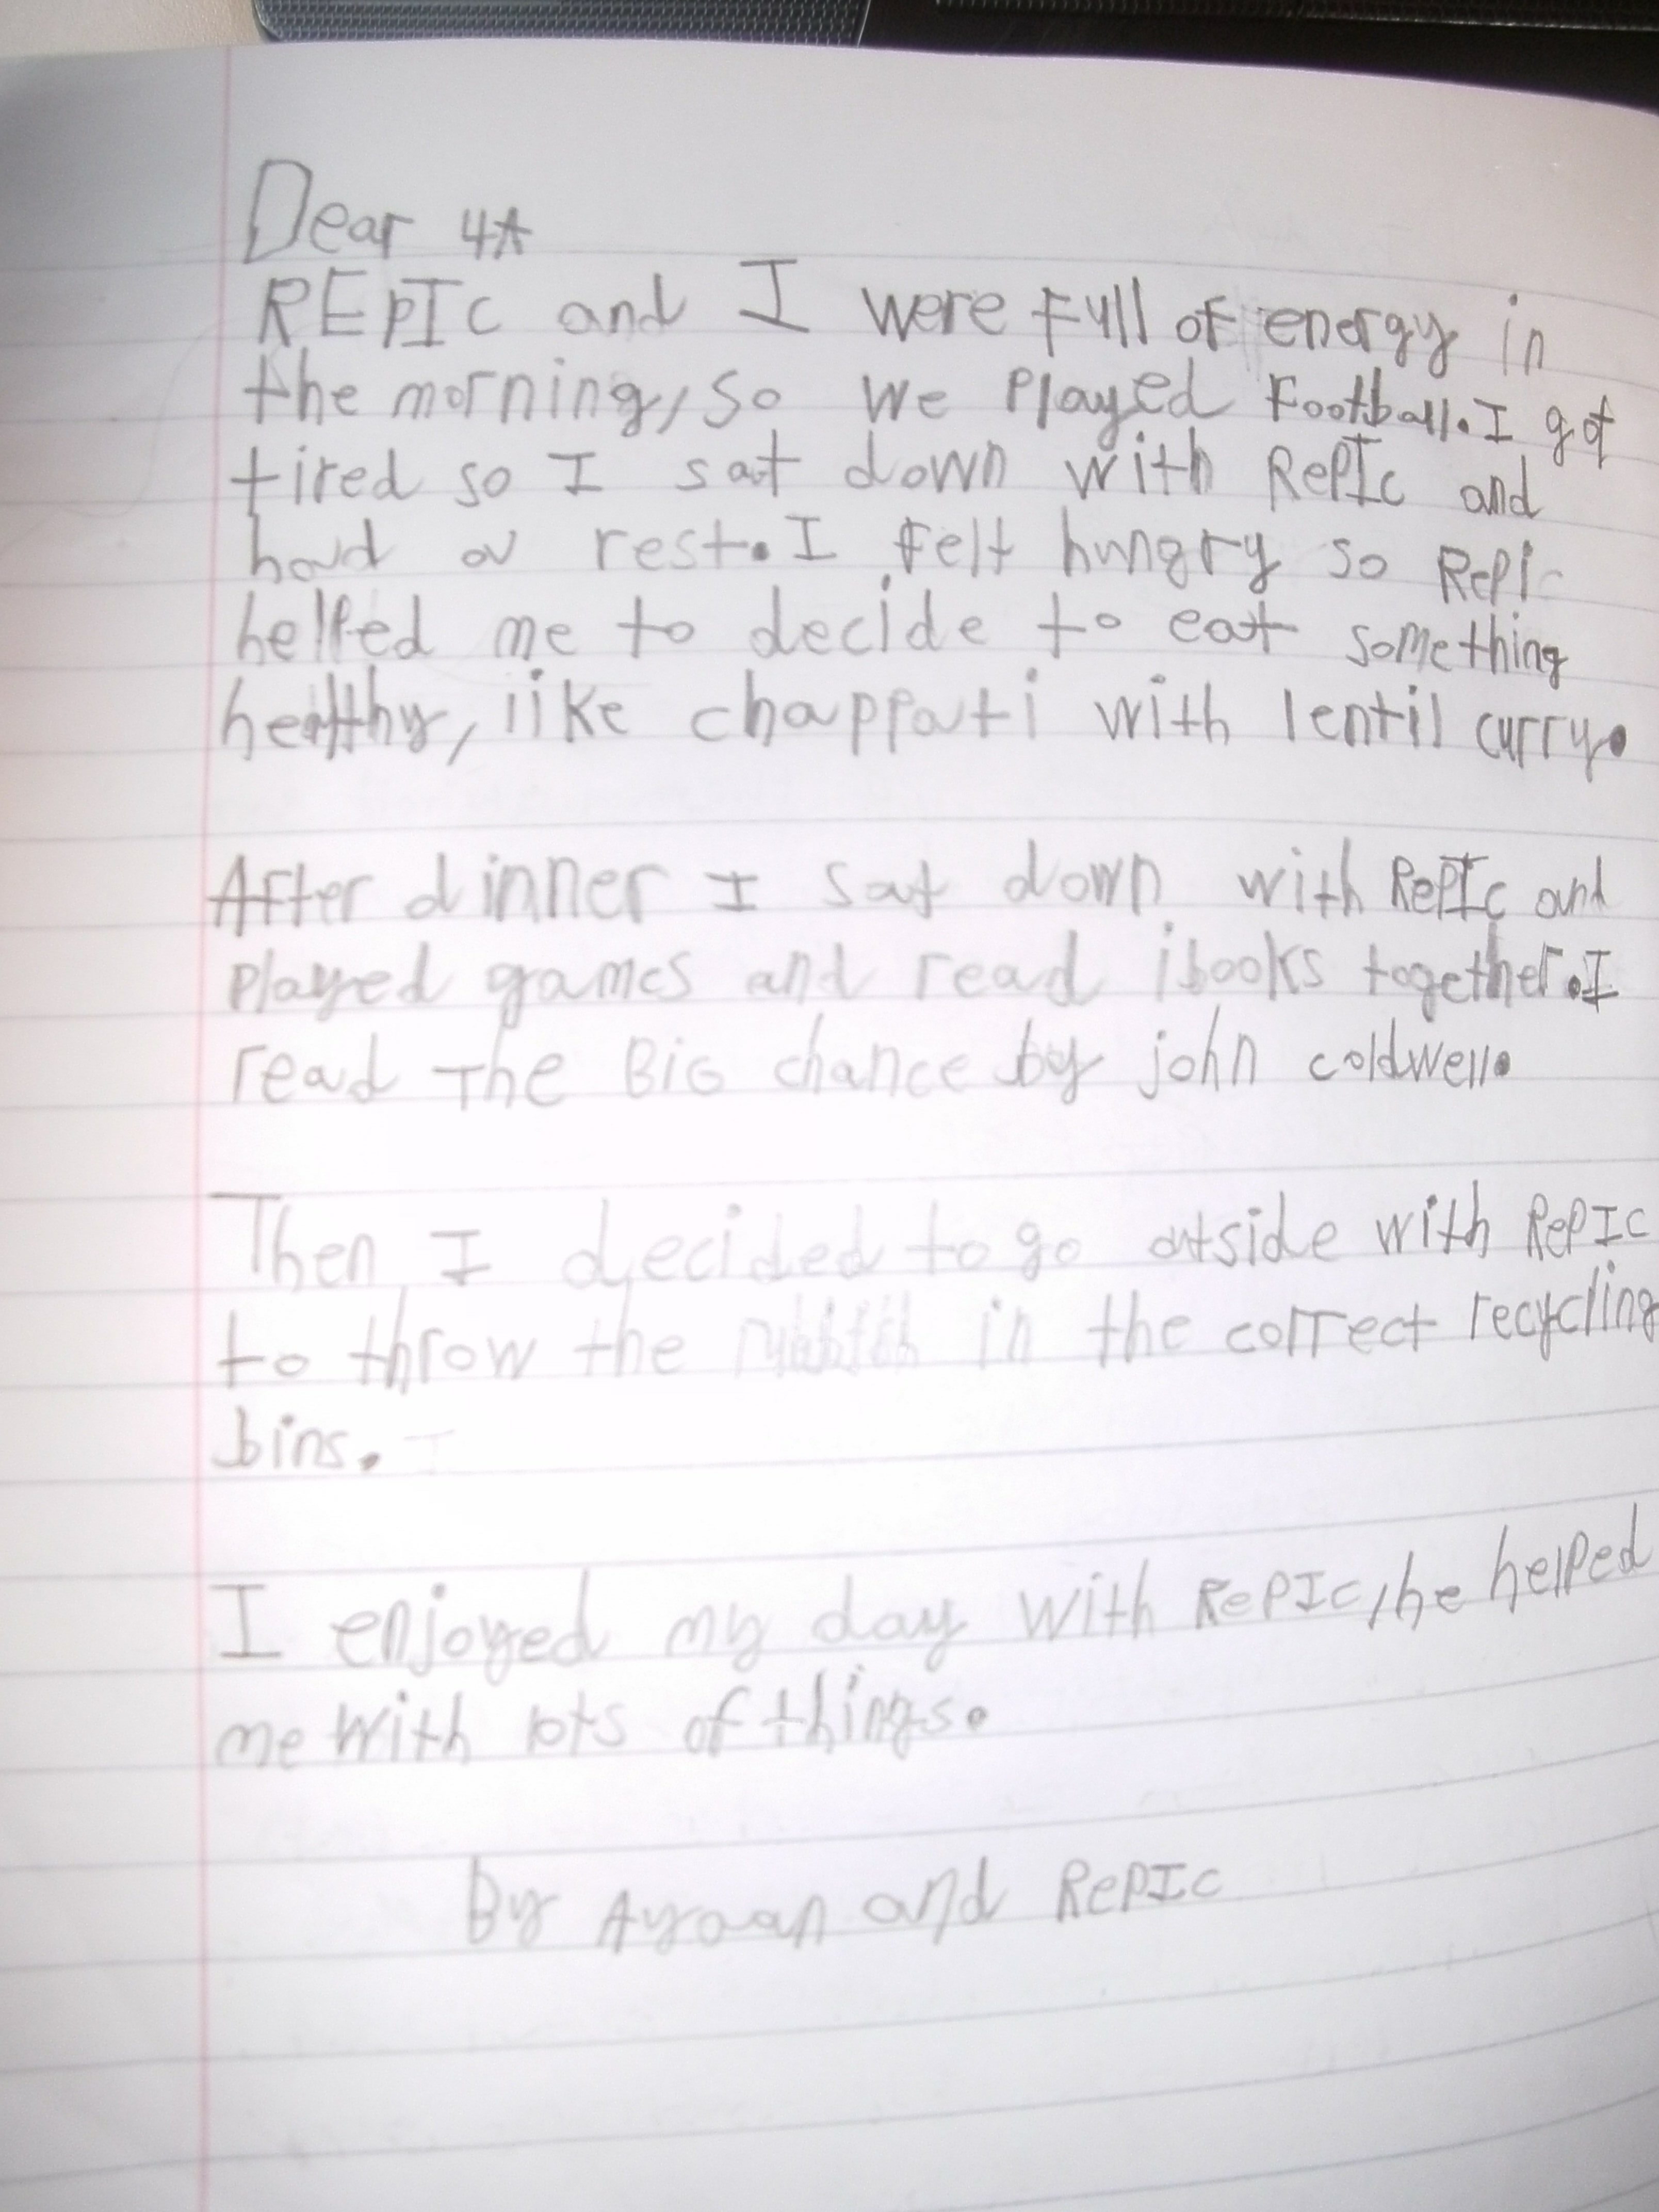 Dear 4A
REpIc and I were full of energy in
the morning, so we played Football. I got
tired so I sat down with RePIc and
had a rest. I felt hungry so RePic
helped me to decide to eat something
healthy, like chappati with lentil curry.
After dinner I sat down with RePIc and
played games and read ibooks together. I
read The BiG chance by john coldwell.
Then I decided to go outside with RePIC
to throw the in the correct recycling
bins.
I enjoyed my day with RePIc, he helped
me with lots of things.
By Ayaan and RePIc